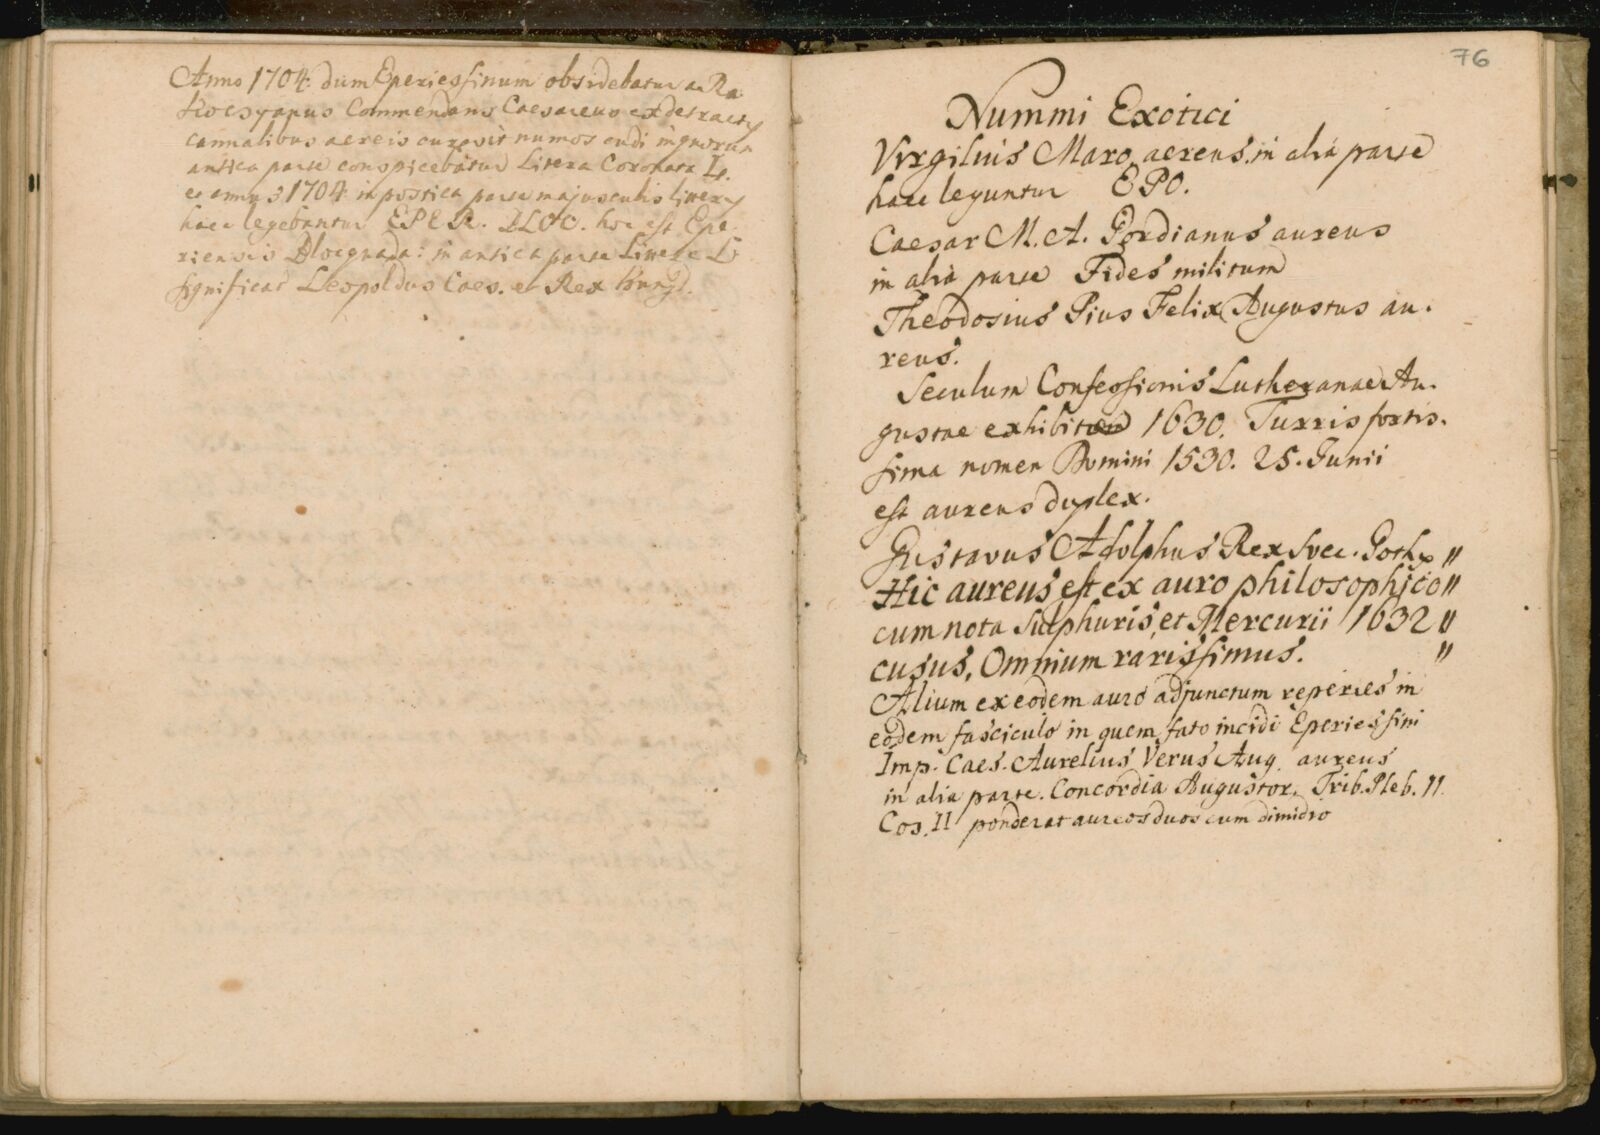 Anno 1704. dum Eperiessinum obsidebatur a Ra
koczyanus Commendans Caesareus ex detractis
cannalibus aereis curavit numos cudi in quorum
antica parte conspiciebatur Litera Coronata L.
et annus 1704 in postica parte majusculis literis
haec legebantur EPER. BLOC. hoc est Epe
riensis Blocquada: in antica parte Litera L
significat Leopoldus Caes. et Rex Hung.
76
Nummi Exotici
Virgilius Maro aereus, in alia parte
haec leguntur EPO.
Caesar M. A. Gordianus aureus
in alia parte Fides militum
Theodosius Pius Felix Augustus au.
reus.
Seculum Confessionis Lutheranae Au.
gustae exhibitae 1630. Turris fortis.
sima nomen Domini 1530. 25. Junii
est aureus duplex.
Gustavus Adolphus Rex Svec. Goth. "
Hic aureus est ex auro philosophico "
cum nota Sulphuris, et Mercurii 1632 "
cusus, Omnium rarissimus. "
Alium ex eodem auro adjunctum reperies in
eodem fasciculo in quem fato incidi Eperiessini
Imp. Caes. Aurelius Verus Aug. aureus
in alia parte. Concordia Augustor. Trib. Pleb. II.
Cos. II ponderat aureos duos cum dimidio